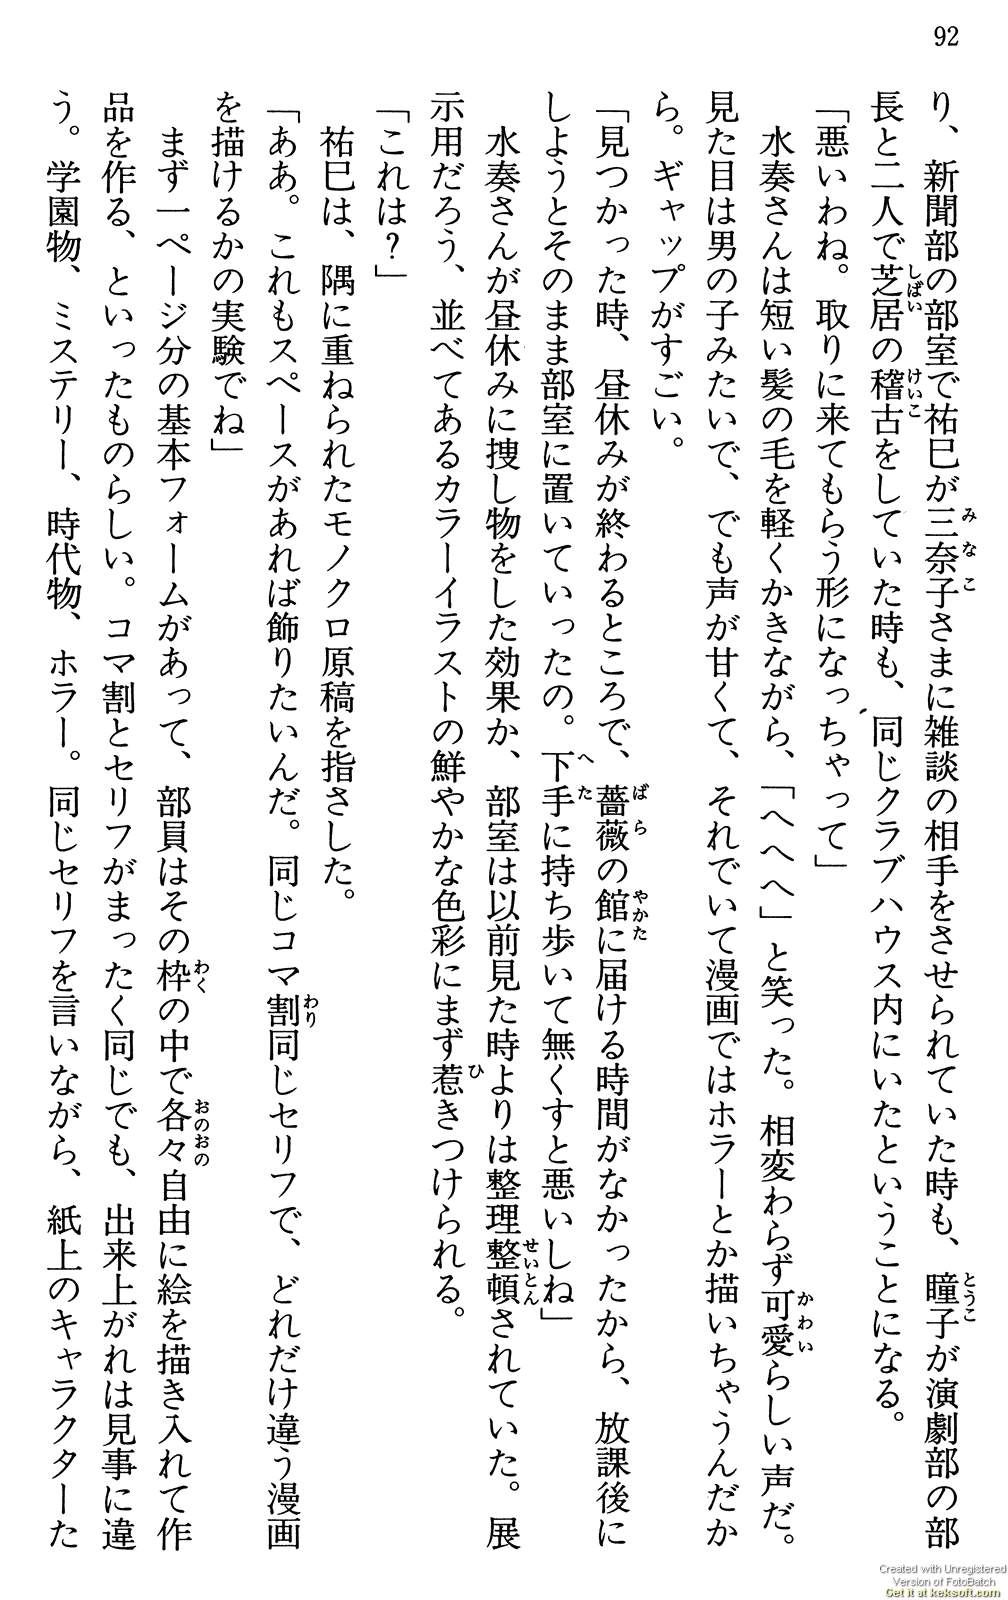 92
り、新聞部の部室で祐巳が三奈子さまに雑談の相手をさせられていた時も、瞳子が演劇部の部
長と二人で芝居の稽古をしていた時も、同じクラブハウス内にいたということになる。
「悪いわね。取りに来てもらう形になっちゃって」
水奏さんは短い髪の毛を軽くかきながら、「へへへ」と笑った。相変わらず可愛らしい声だ。
見た目は男の子みたいで、でも声が甘くて、それでいて漫画ではホラーとか描いちゃうんだか
ら。ギャップがすごい。
「見つかった時、昼休みが終わるところで、薔薇の館に届ける時間がなかったから、放課後に
しようとそのまま部室に置いていったの。下手に持ち歩いて無くすと悪いしね」
水奏さんが昼休みに捜し物をした効果か、部室は以前見た時よりは整理整頓されていた。展
示用だろう、並べてあるカラーイラストの鮮やかな色彩にまず惹きつけられる。
「これは？」
祐巳は、隅に重ねられたモノクロ原稿を指さした。
「ああ。これもスペースがあれば飾りたいんだ。同じコマ割同じセリフで、どれだけ違う漫画
を描けるかの実験でね」
まず一ページ分の基本フォームがあって、部員はその枠の中で各々自由に絵を描き入れて作
品を作る、といったものらしい。コマ割とセリフがまったく同じでも、出来上がれは見事に違
う。学園物、ミステリー、時代物、ホラー。同じセリフを言いながら、紙上のキャラクターた
Created with Unregistered
Version of FotoBatch
Get it at keksoft.com